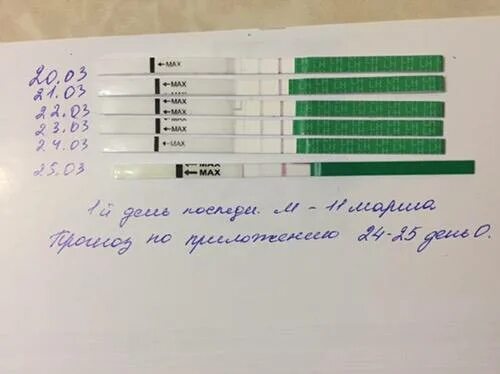 20.03 ←MAX
21.03 ←MAX
22.03 ←MAX
23.03 ←MAX
24.03 ←MAX
25.03 ←MAX
1й день последн. М - 11 марта
Прогноз по приложению 24-25 день О.